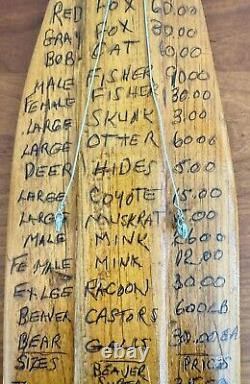 RED FOX 60.00
GRAY FOX 30.00
BOB CAT 60.00
MALE FISHER 90.00
FEMALE FISHER 130.00
LARGE SKUNK 3.00
LARGE OTTER 60.00
DEER HIDES 5.00
LARGE COYOTE 15.00
LARG MUSKRAT .00
MALE MINK 26.00
FEMALE MINK 12.00
EX.LGE RACOON 30.00
BEAVER CASTORS 600LB
BEAR GALLS 30.00EA
SIZES BEAVER PRICES